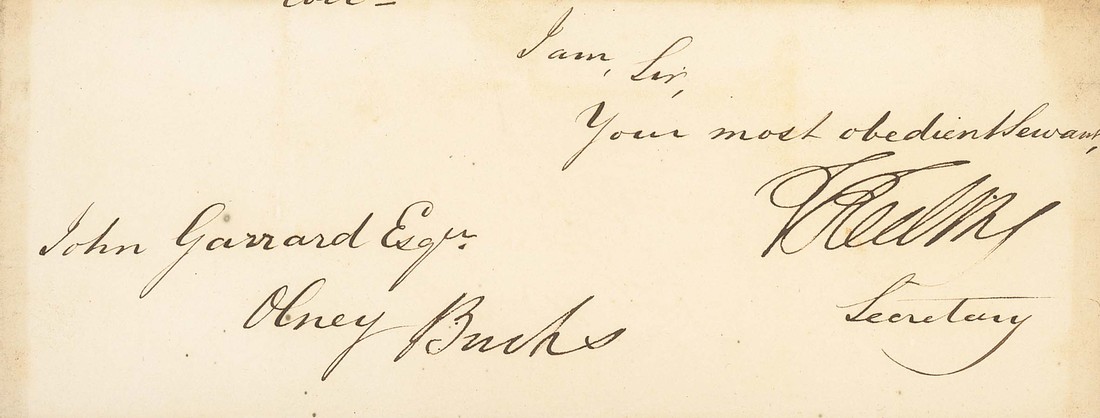 I am, Sir,
Your most obedient Servant,
John Garrard Esqr.
Olney Bucks
Secretary